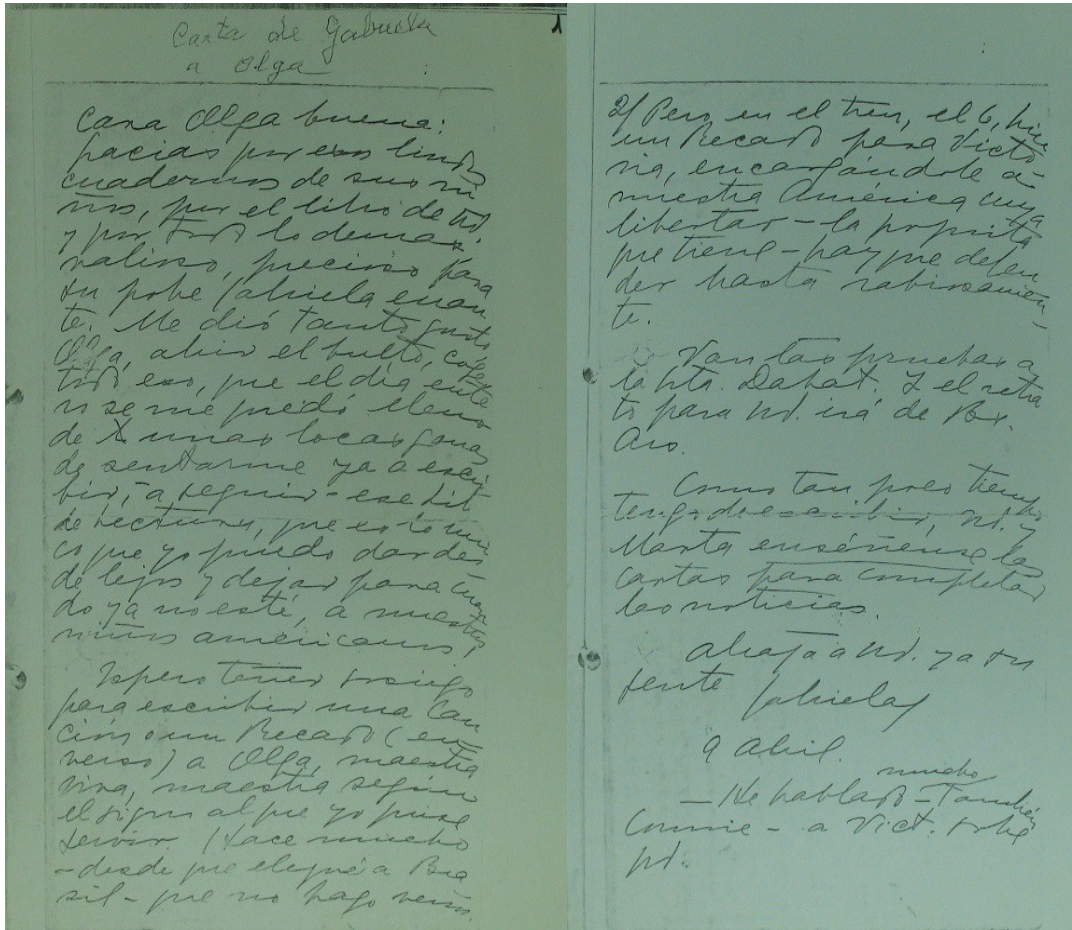 Carta de Gabriela
a Olga
1
Cara Olga buena:
gracias por esos lindos
cuadernos de sus ni
ños, por el libro de Ud.
y por todo lo demás
valioso, precioso para
su pobre Gabriela erran
te. Me dió tanto gusto,
Olga, abrir el bulto,
todo eso, que el día ente
ro se me quedó lleno
de unas locas ganas
de sentarme ya a escri
bir, a seguir – ese
de lectura, que es lo úni
co que yo puedo dar des
de lejos y dejar para cuan
do ya no esté, a nuestros
niños americanos.
Espero tener sosiego
para escribir una Can
ción o un Recado (en
verso) a Olga, maestra
viva, maestra según
el signo al que yo quise
servir. (Hace mucho
– desde que llegué a Bra
sil – que no hago versos.
2/ Pero, en el tren, el 6, hice
un Recado para Victo
ria, encargándole a
nuestra América cuya
libertad – la poquita
que tiene – hay que defen
der hasta rabiosamen–
te.
Van las pruebas a
la Srta. Dabat. Y el retra
to para Ud. irá de Bs.
As.
Como tan poco tiempo
tengo de escribir, Ud. y
Marta enséñense las
cartas para completar
las noticias.
abraza a Ud. y a su
gente Gabriela
9 abril.
mucho
– He hablado – También
Connie – a Vict. sobre
Ud.